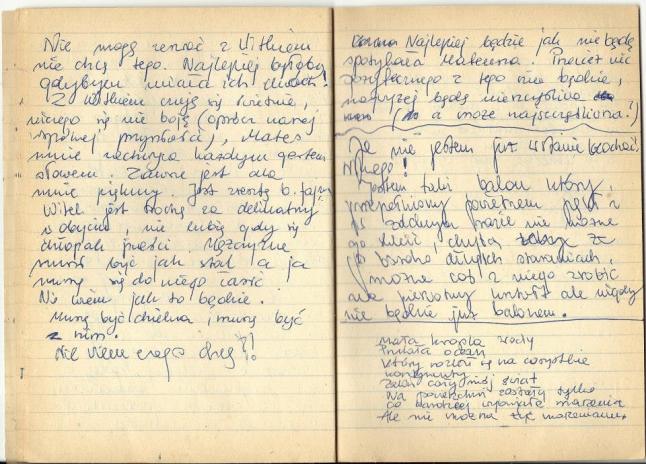 Nie mogę zerwać z Witkiem
nie chcę tego. Najlepiej byłoby
gdybym miała ich dwóch!
Z Witkiem czuję się świetnie,
niczego się nie boję (oprócz naszej
wspólnej przyszłości), Mates
mnie zachwyca każdym gestem
słowem. Zawsze jest dla
mnie piękny. Jest zresztą b. fajny
Witek jest trochę za delikatny
w obyciu, nie lubię gdy się
chłopak pieści Mężczyzna
musi być jak stal a ja
muszę się do niego łasić
Nie wiem jak to będzie.
Muszę być dzielna, muszę być
z nim.
Nie wiem czego chcę?!
Najlepiej będzie jak nie będę
spotykała Matesa. Przecież nic
z tego nie będzie,
najwyżej będę nieszczęśliwa
(a może najszczęśliwsza?)
Ja nie jestem już w stanie kochać
nikogo!
Jestem taki balon który
przepełniony powietrzem pękł i
już żadnym prawie nie można
go skleić, chyba że
po bardzo długich staraniach,
można coś z niego zrobić
na pierwotny kształt ale nigdy
nie będzie już balonem.
Mała kropla wody
ocean
Który rozlał się na wszystkie
kontynenty
Zalał cały mój świat
Na powierzchni zostały tylko
co bardziej marzenia
Ale nie można żyć marzeniami